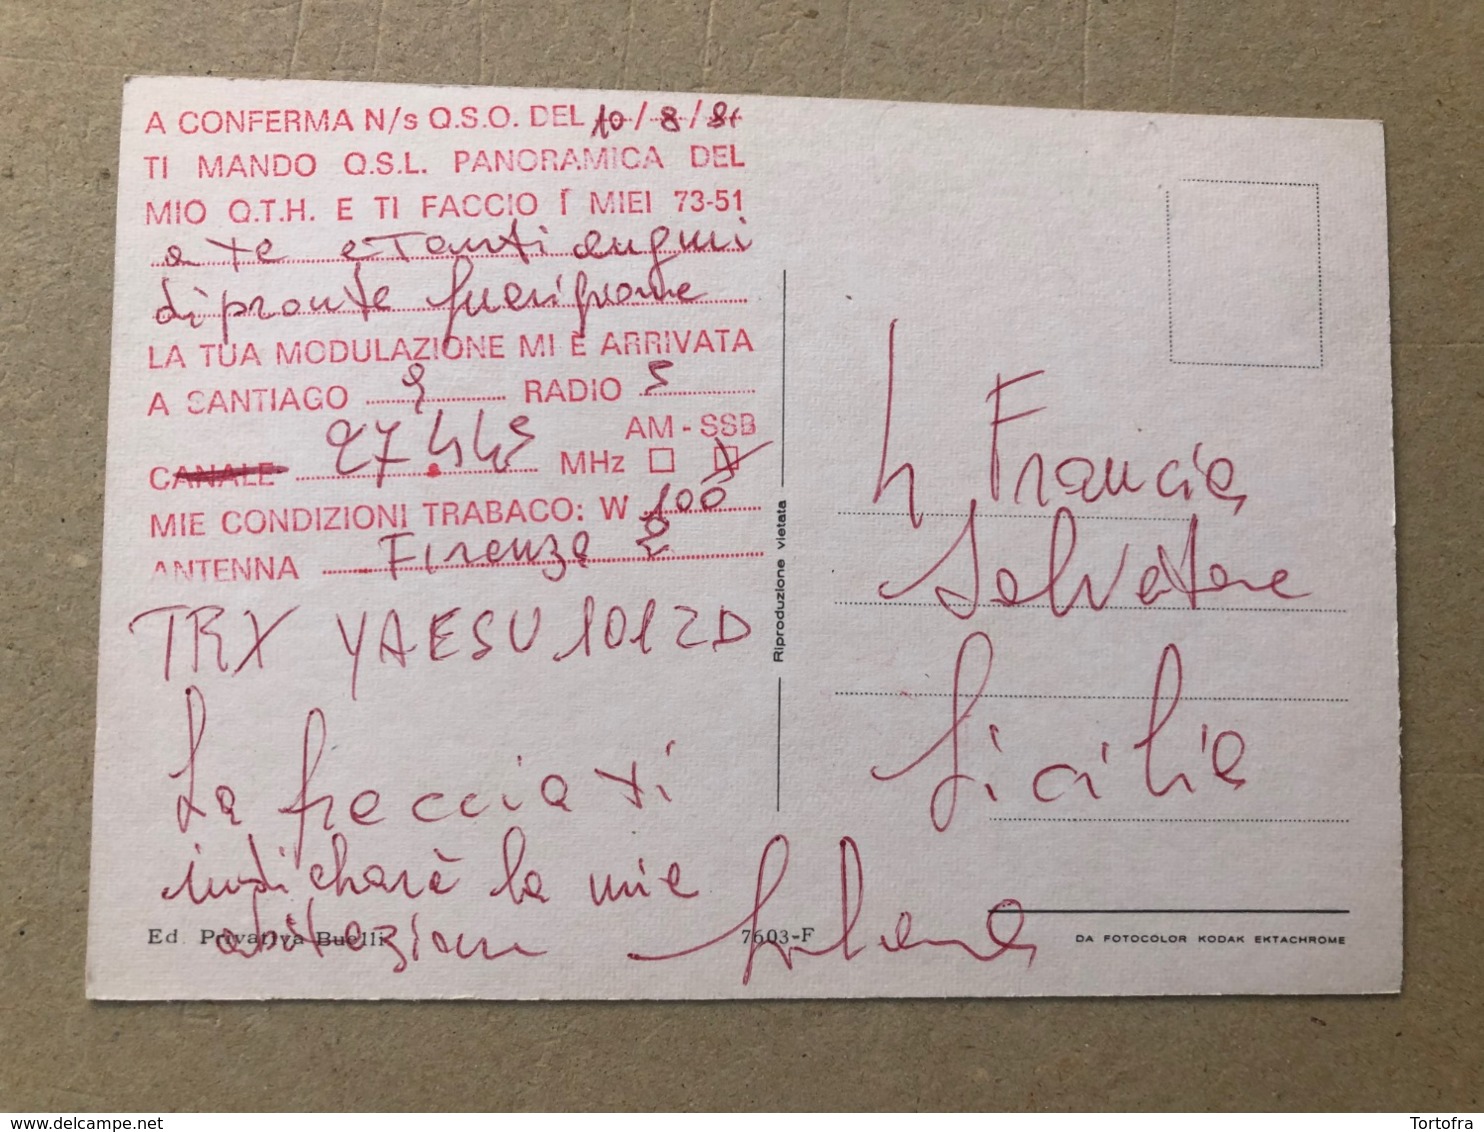 A CONFERMA N/s Q.S.O. DEL 10/8/81
TI MANDO Q.S.L. PANORAMICA DEL
MIO Q.T.H. E TI FACCIO I MIEI 73-51
a te e Tanti auguri
di pronte guarigione
LA TUA MODULAZIONE MI È ARRIVATA
A SANTIAGO 9 RADIO 5
AM - SSB
CANALE 27.445 MHz
MIE CONDIZIONI TRABACO: W 100
ANTENNA Firenze 2
TRX YAESU 101ZD
La freccia ti
indicharà la mia
abitazione
Ed. Privativa Buelli
7603-F
Riproduzione vietata
Francia
Salvatore
Sicilia
DA FOTOCOLOR KODAK EKTACHROME
Tortofra